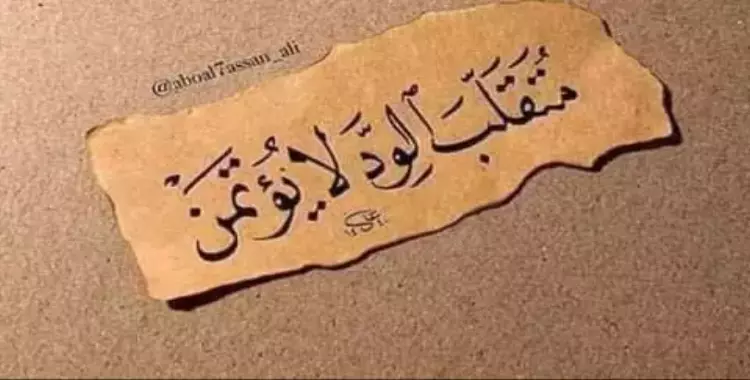 @aboal7assan_ali
مُتَقَلِّبَ ٱلوِدَّ لَا يُؤتمَنَ